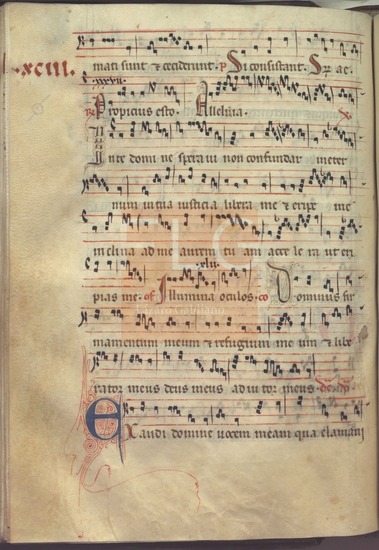 .xciii.
mati sunt & ceciderunt. p Si consistant. Sp ac.
.xxxvii.
Propicius esto. Alleluia.
In te domine speraui non confundar in eter
num in tua iusticia libera me & eripe me
inclina ad me aurem tuam accelera ut eri
.xlii.
pias me. of Illumina oculos. co Dominus fir
mamentum meum & refugium meum & libe
rator meus deus meus adiutor meus.
Exaudi domine uocem meam qua clamaui